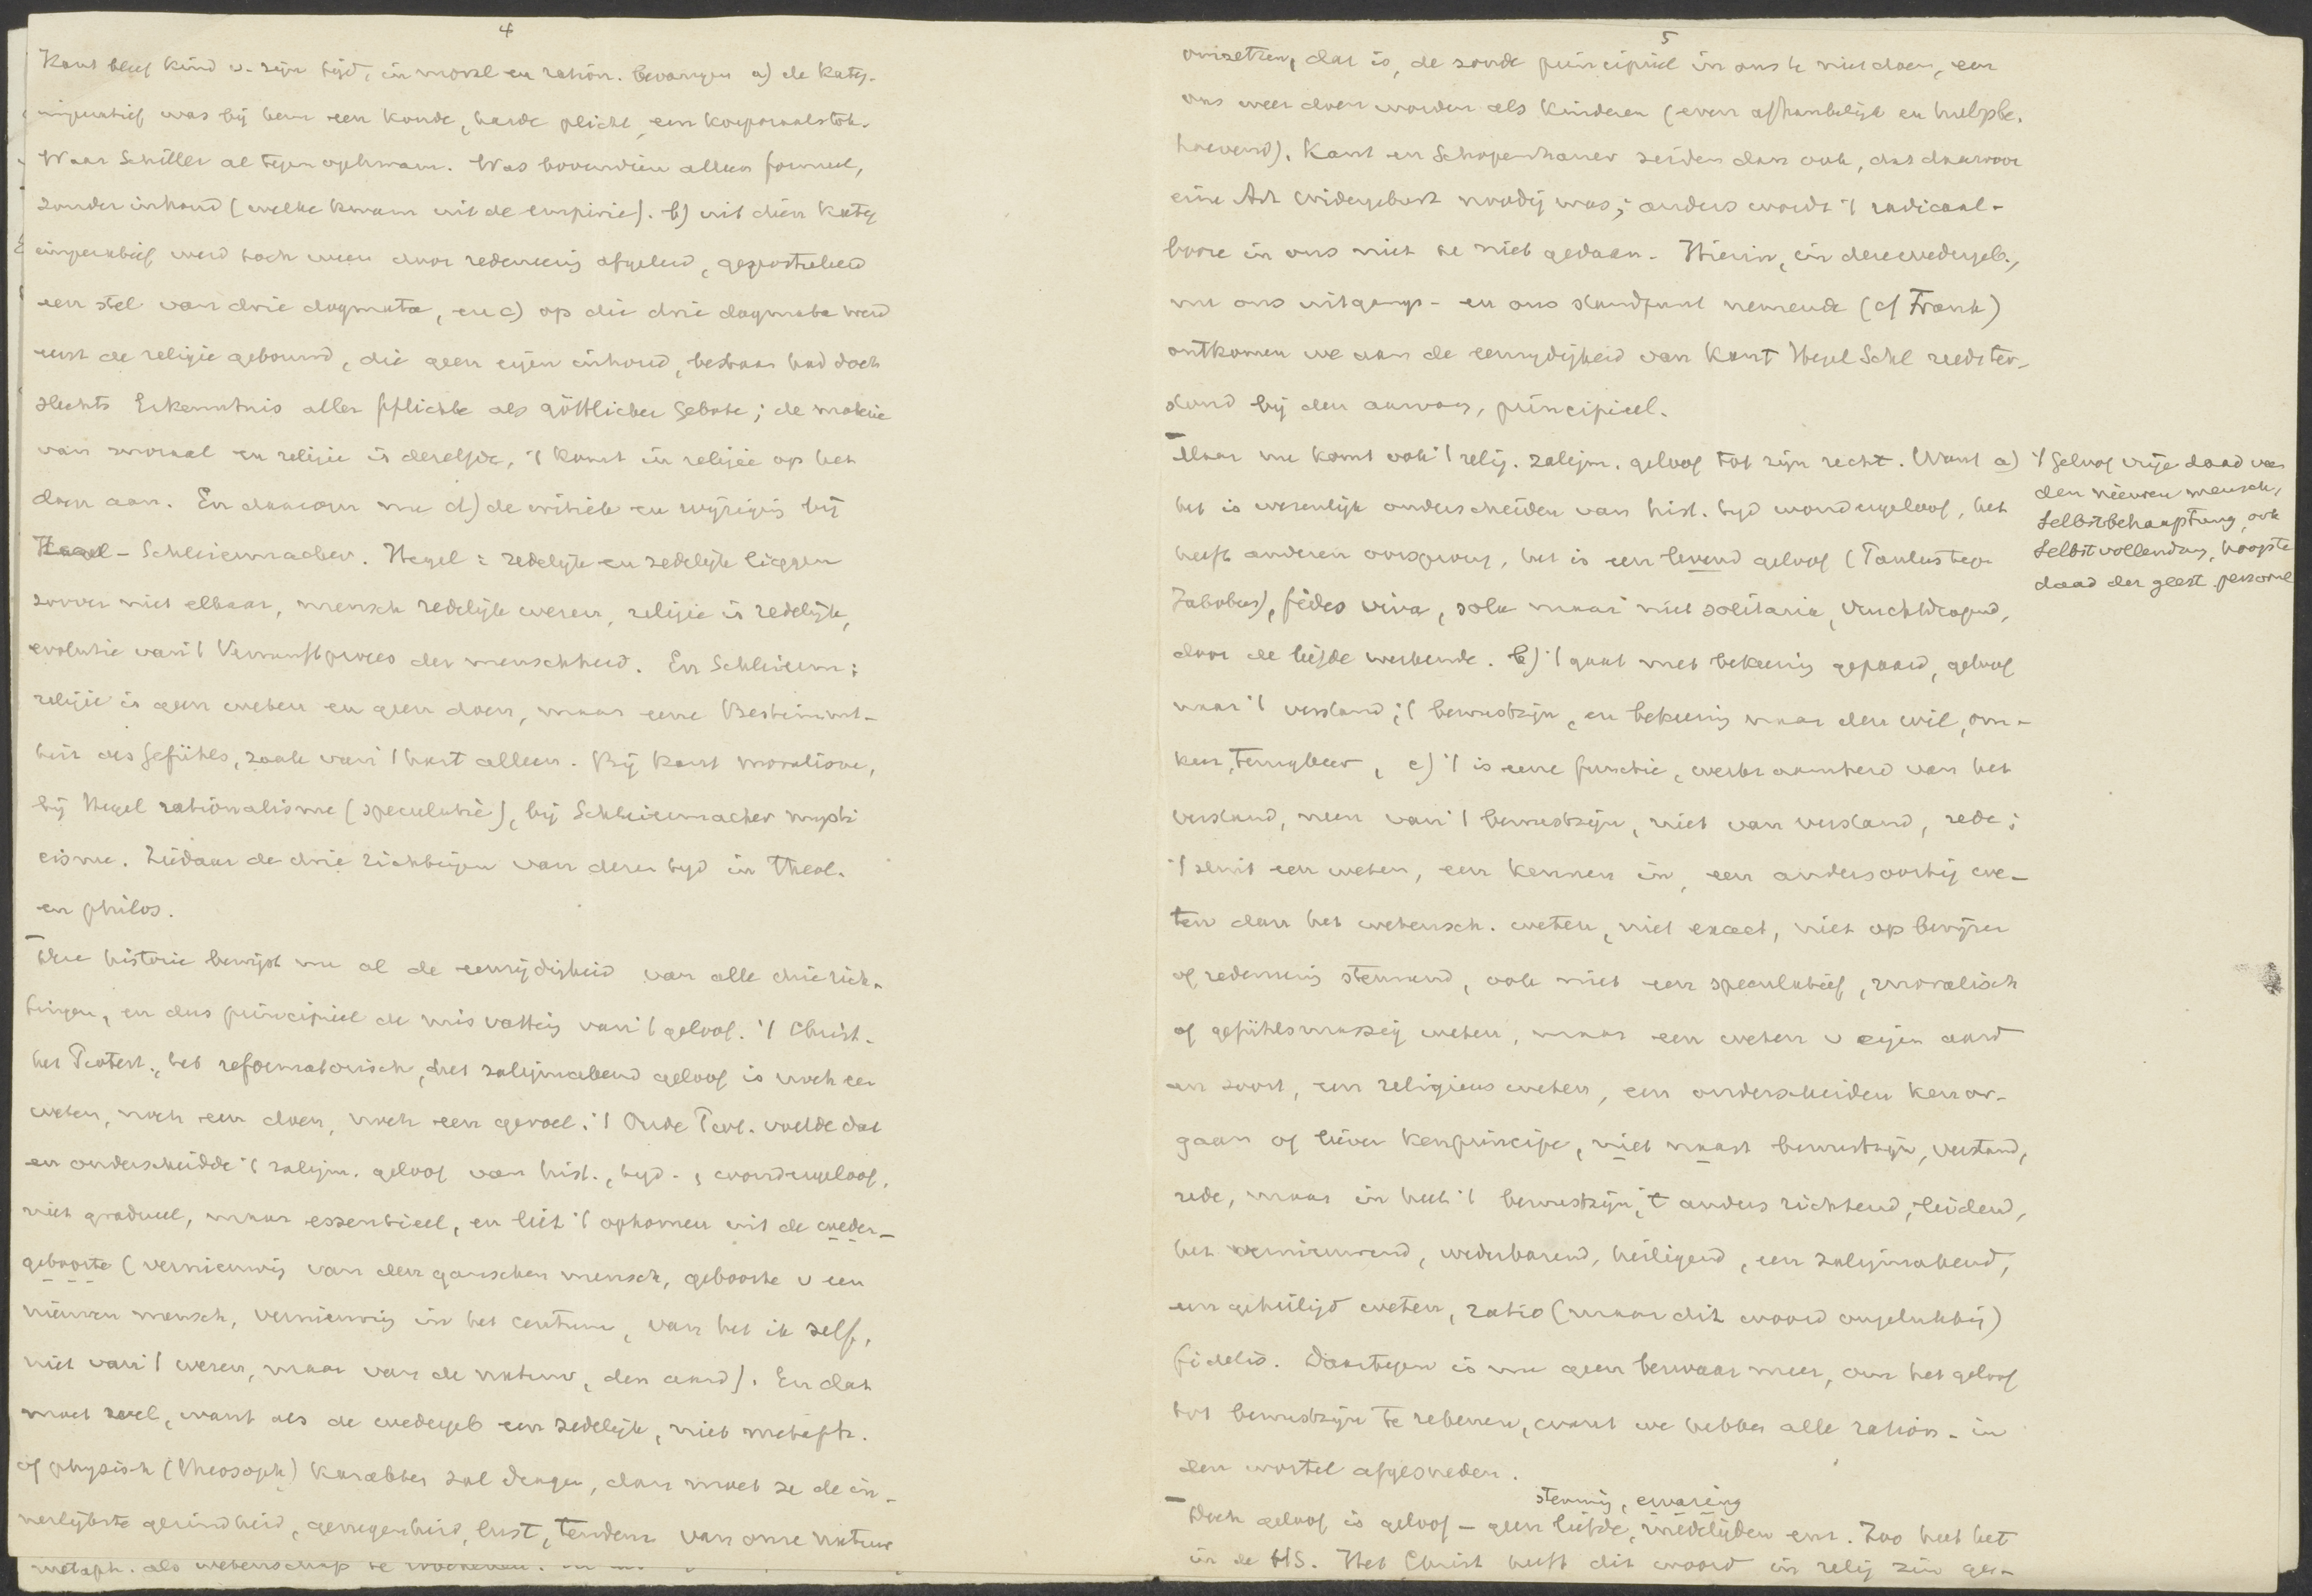 4
Kant bleef kind v. zijn tijd, in moral en ration. bevangen a) de kateg.
imperatief was bij hem een koude, harde plicht, een korporaalstok.
Waar Schiller al tegen opkwam. Was bovendien alleen formeel,
zonder inhoud (welke kwam uit de empirie). b) uit dien kateg
imperatief werd toch weer door redeneering afgeleid, gepostuleerd
een stel van drie dogmata, en c) op die drie dogmata werd
eerst de religie gebouwd, die geen eigen inhoud, bestaan had doch
slechts Erkenntnis aller Pflichte als göttlicher Gebote; de materie
van moraal en religie is dezelfde, 't komt in religie op het
doen aan. En daarom nu d) de critiek en wijziging bij
Hegel - Schleiermacher. Hegel: redelijk en zedelijk liggen
zoover niet elkaar, mensch redelijk wezen, religie is redelijk,
evolutie van 't Vernunftproces der menschheid. En Schleierm:
religie is geen weten en geen doen, maar eene Bestimmt-
heit des Gefühls, zaak van 't hart alleen. Bij Kant moralisme,
bij Hegel rationalisme (speculatie), bij Schleiermacher mysti
cisme. Ziedaar de drie richtingen van dezen tijd in theol.
en philos.
De historie bewijst nu al de eenzijdigheid van alle drie rich-
tingen, en dus principieel de misvatting van 't geloof. 't Christ.
het Protest., het reformatorisch, het zaligmakend geloof is noch een
weten, noch een doen, noch een gevoel. 't Oude Prot. voelde dat
en onderscheidde 't zaligm. geloof van hist., tijd-, wondergeloof,
niet gradueel, maar essentieel, en liet 't opkomen uit de weder-
geboorte (vernieuwing van den ganschen mensch, geboorte v een
nieuwen mensch, vernieuwing in het centrum, van het ik zelf,
niet van 't wezen, maar van de natuur, den aard). En dat
moet wel, want als de wedergeb een zedelijk, niet metaph.
of physisch (theosoph) karakter zal dragen, dan moet ze de in-
nerlijkste gezindheid, genegenheid, lust, tendenz van onze natuur
metaph. als wetenschap te
5
omzetten, dat is, de zonde principieel in ons te niet doen, een
ons weer doen worden als kinderen (even afhankelijk en hulpbe.
hoevend). Kant en Schopenhauer zeiden dan ook, dat daarvoor
eine Art Widergeburt noodig was; anders wordt 't radicaal-
booze in ons niet te niet gedaan. Hierin, in deze wedergeb.,
nu ons uitgangs- en ons standpunt nemende (cf Frank)
ontkomen we aan de eenzijdigheid van Kant Hegel Schl reeds ter-
stond bij den aanvang, principieel.
Maar nu komt ook 't relig. zaligm. geloof tot zijn recht. Want a)
het is wezenlijk onderscheiden van hist. tijd wondergeloof, het
heeft anderen oorsprong, het is een levend geloof (Paulus tegen
Jakobus), fides viva, sola maar niet solitaria, vruchtdragend,
door de liefde werkende. b) 't gaat met bekeering gepaard, geloof
naar 't verstand; 't bewustzijn, en bekeering naar den wil, om-
keer, terugkeer, c) 't is eene functie, werkzaamheid van het
verstand, neen van 't bewustzijn, niet van verstand, rede;
't sluit een weten, een kennen in, een andersoortig we-
ten dan het wetensch. weten, niet exact, niet op bewijzen
of redeneering steunend, ook niet een speculatief, moralisch
of gefühlsmässig weten, maar een weten v eigen aard
en soort, een religieus weten, een onderscheiden kenor-
gaan of liever kenprincipe, niet naast bewustzijn, verstand,
rede, maar in heel 't bewustzijn, 't anders richtend, leidend,
het vernieuwend, wederbarend, heiligend, een zaligmakend,
een geheiligd weten, ratio (maar dit woord ongelukkig)
fidelis. Daartegen is nu geen bezwaar meer, om het geloof
tot bewustzijn te rekenen, want we hebben alle ration. in
den wortel afgesneden.
stemming, ervaring
Doch geloof is geloof - geen liefde, medelijden enz. Zoo heet het
in de HS. Het Christ heeft dit woord in relig zin ge-
't Geloof vrije daad van
den nieuwen mensch,
Selbstbehauptung, ook
Selbstvollendung, hoogste
daad der geest. persoonl